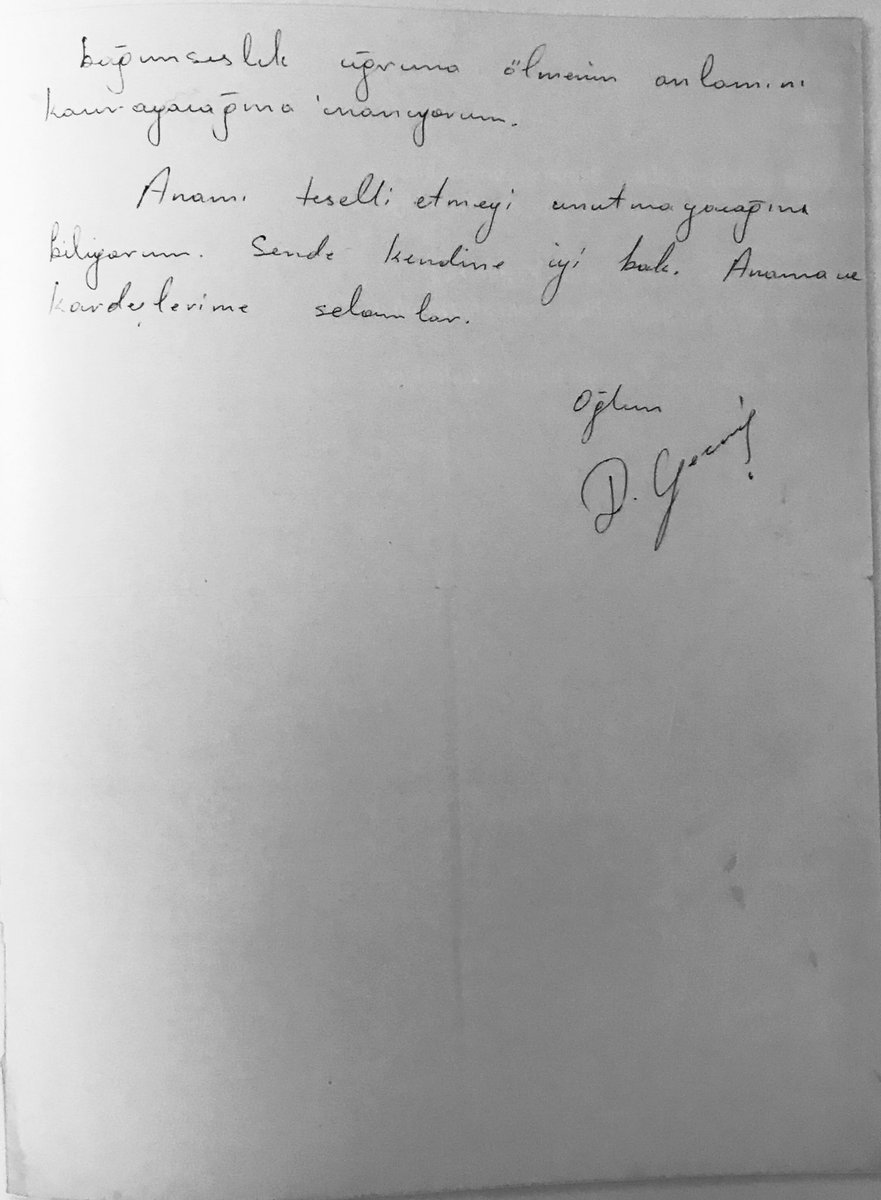 bağımsızlık uğruna ölmenin anlamını
kavrayacağına inanıyorum.
Anamı teselli etmeyi unutmayacağını
biliyorum. Sende kendine iyi bak. Anama ve
kardeşlerime selamlar.
Oğlun
D. Gezmiş